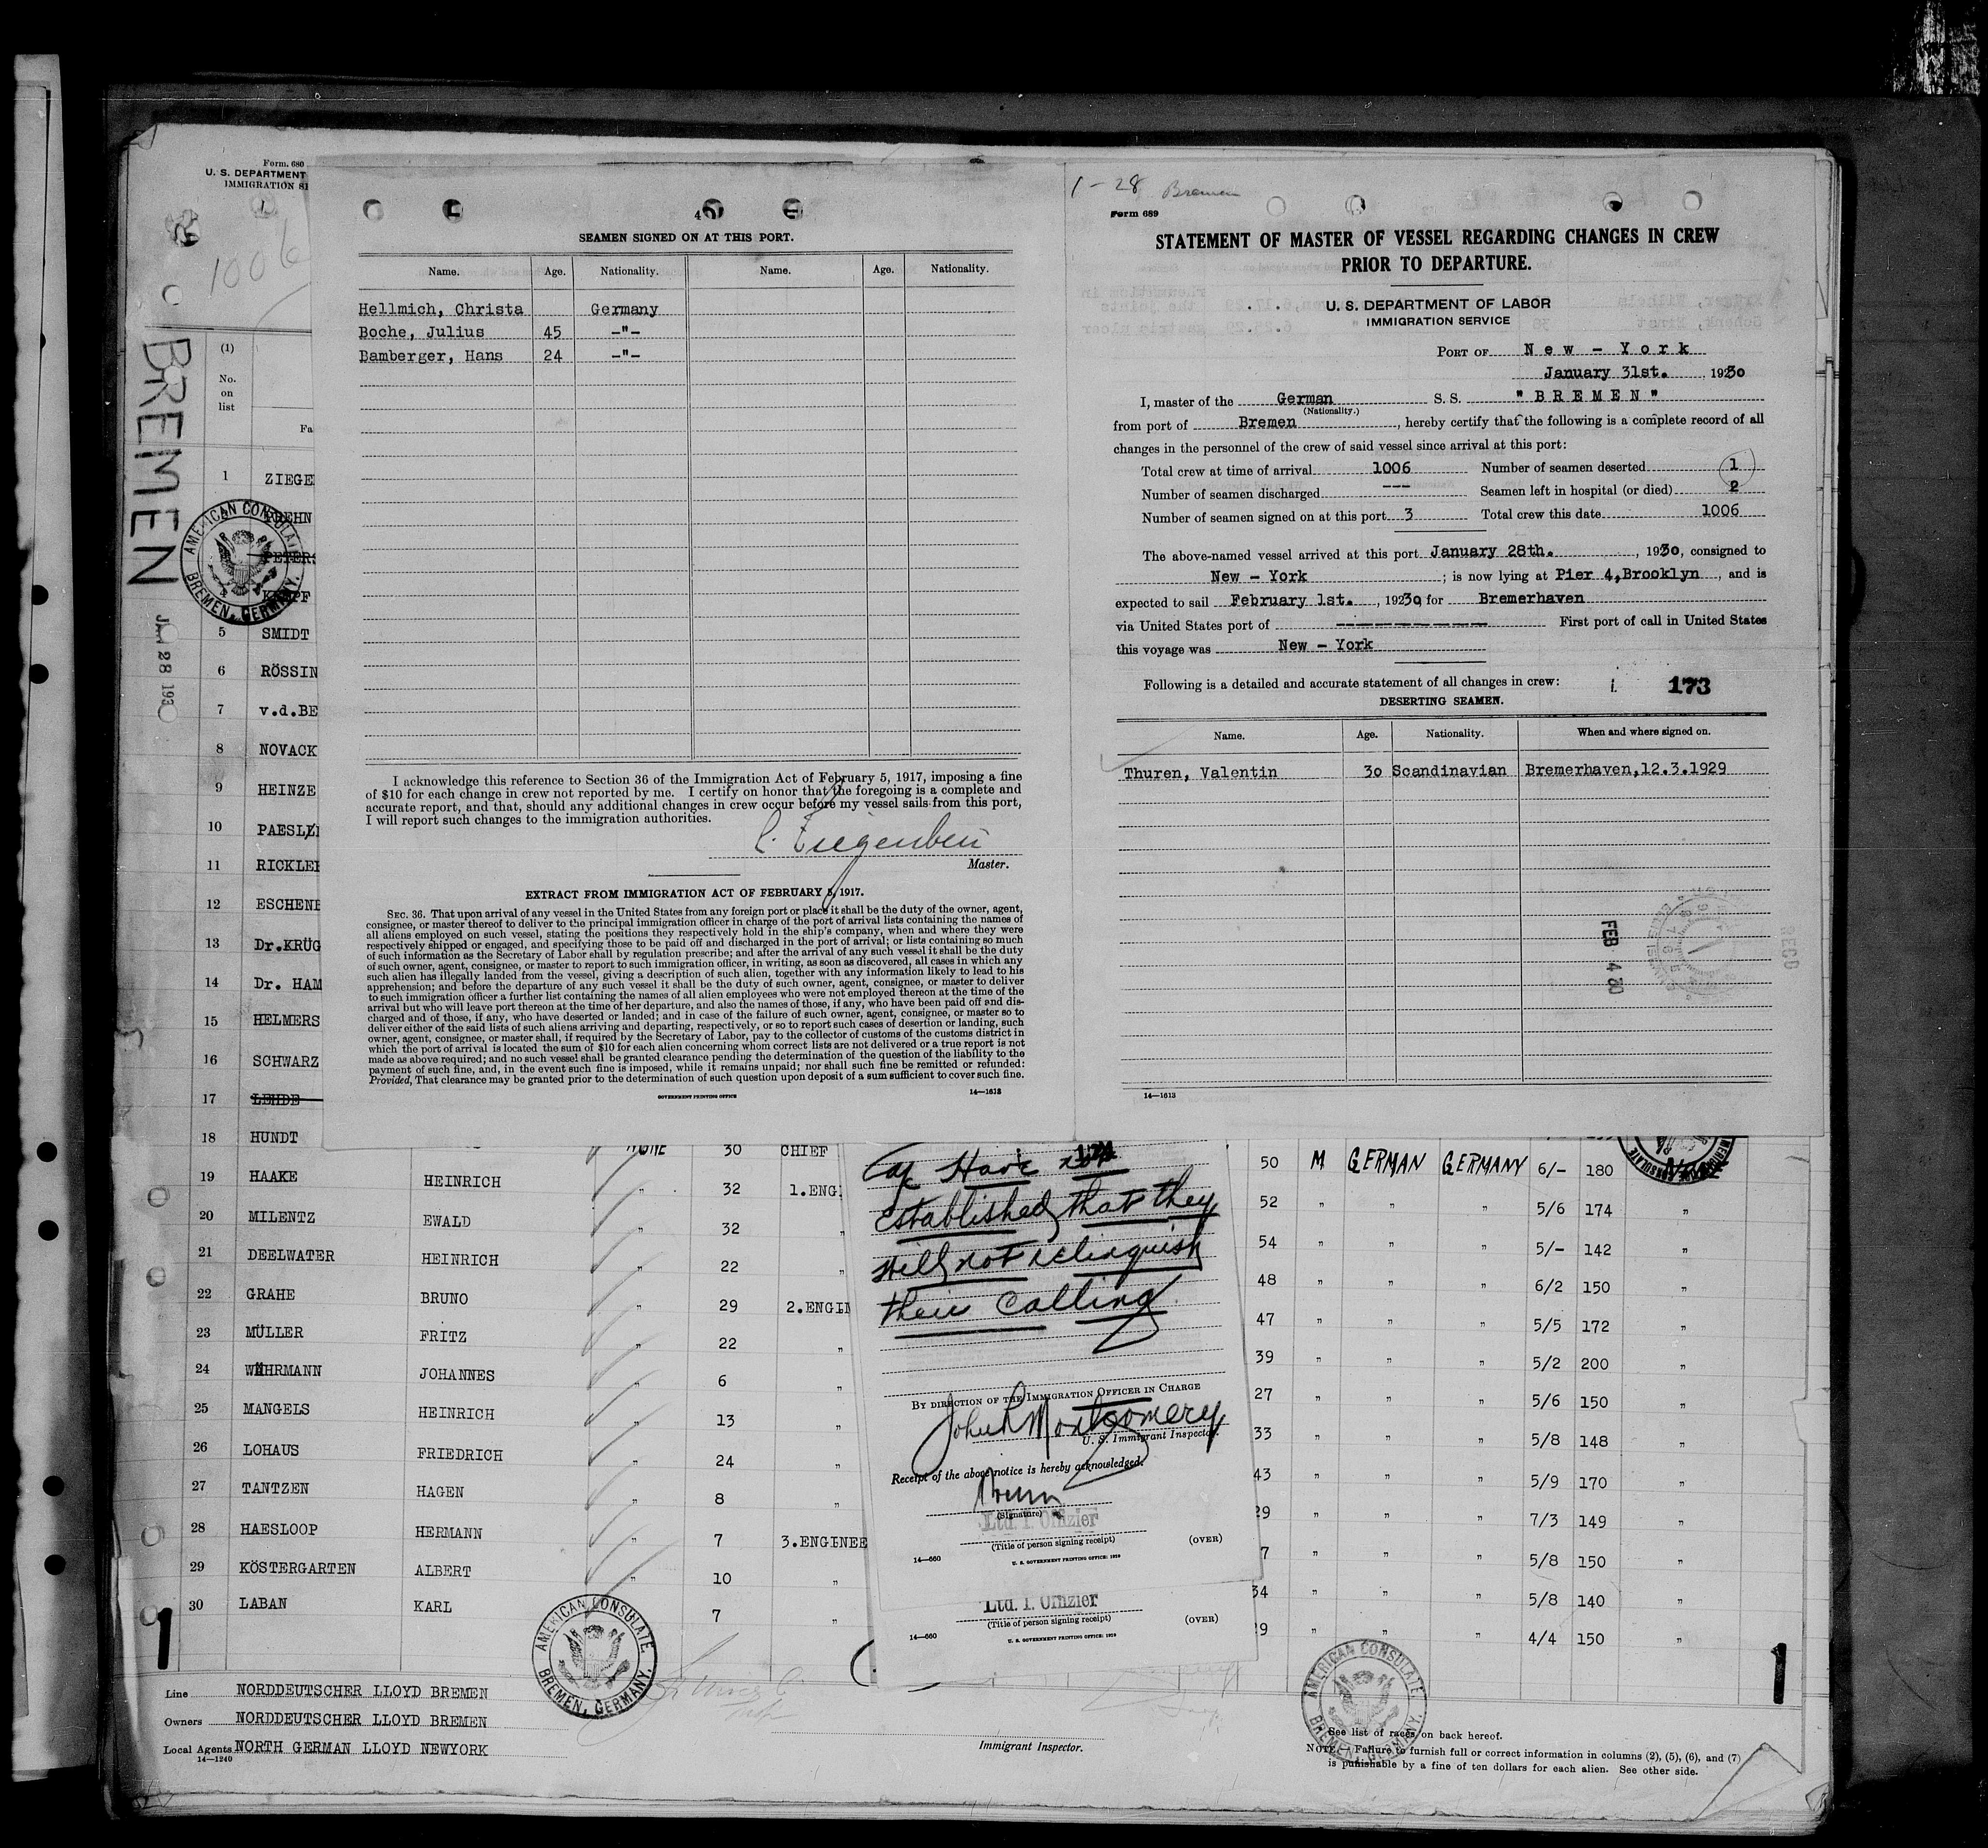 Form. 680
U. S. DEPARTMENT
IMMIGRATION
1006
BREMEN
JAN 28 1930
(1)
No.
on
list
Fa
1 ZIEGE
REHN
PETERS
5 SMIDT
6 RÖSSIN
7 v.d.BE
8 NOVACK
9 HEINZE
10 PAESL
11 RICKLE
12 ESCHENB
13 Dr.KRÜG
14 Dr. HAM
15 HELMERS
16 SCHWARZ
17 LEHDE
18 HUNDT
AMERICAN CONSULATE
BREMEN, GERMANY.
4
SEAMEN SIGNED ON AT THIS PORT.
Name. Age. Nationality. Name. Age. Nationality.
Hellmich, Christa Germany
Boche, Julius 45 -"-
Bamberger, Hans 24 -"-
I acknowledge this reference to Section 36 of the Immigration Act of February 5, 1917, imposing a fine
of $10 for each change in crew not reported by me. I certify on honor that the foregoing is a complete and
accurate report, and that, should any additional changes in crew occur before my vessel sails from this port,
I will report such changes to the immigration authorities.
L. Ziegenbein
Master.
EXTRACT FROM IMMIGRATION ACT OF FEBRUARY 5, 1917.
SEC. 36. That upon arrival of any vessel in the United States from any foreign port or place it shall be the duty of the owner, agent,
consignee, or master thereof to deliver to the principal immigration officer in charge of the port of arrival lists containing the names of
all aliens employed on such vessel, stating the positions they respectively hold in the ship's company, when and where they were
respectively shipped or engaged, and specifying those to be paid off and discharged in the port of arrival; or lists containing so much
of such information as the Secretary of Labor shall by regulation prescribe; and after the arrival of any such vessel it shall be the duty
of such owner, agent, consignee, or master to report to such immigration officer, in writing, as soon as discovered, all cases in which any
such alien has illegally landed from the vessel, giving a description of such alien, together with any information likely to lead to his
apprehension; and before the departure of any such vessel it shall be the duty of such owner, agent, consignee, or master to deliver
to such immigration officer a further list containing the names of all alien employees who were not employed thereon at the time of the
arrival but who will leave port thereon at the time of her departure, and also the names of those, if any, who have been paid off and dis-
charged and of those, if any, who have deserted or landed; and in case of the failure of such owner, agent, consignee, or master so to
deliver either of the said lists of such aliens arriving and departing, respectively, or so to report such cases of desertion or landing, such
owner, agent, consignee, or master shall, if required by the Secretary of Labor, pay to the collector of customs of the customs district in
which the port of arrival is located the sum of $10 for each alien concerning whom correct lists are not delivered or a true report is not
made as above required; and no such vessel shall be granted clearance pending the determination of the question of the liability to the
payment of such fine, and, in the event such fine is imposed, while it remains unpaid; nor shall such fine be remitted or refunded:
Provided, That clearance may be granted prior to the determination of such question upon deposit of a sum sufficient to cover such fine.
GOVERNMENT PRINTING OFFICE 14—1613
1-28 Bremen
Form 689
STATEMENT OF MASTER OF VESSEL REGARDING CHANGES IN CREW
PRIOR TO DEPARTURE.
U. S. DEPARTMENT OF LABOR
IMMIGRATION SERVICE
PORT OF New - York
January 31st. 1930
I, master of the German S. S. "BREMEN"
(Nationality.)
from port of Bremen, hereby certify that the following is a complete record of all
changes in the personnel of the crew of said vessel since arrival at this port:
Total crew at time of arrival 1006 Number of seamen deserted 1
Number of seamen discharged --- Seamen left in hospital (or died) 2
Number of seamen signed on at this port 3 Total crew this date 1006
The above-named vessel arrived at this port January 28th., 1930, consigned to
New - York ; is now lying at Pier 4,Brooklyn, and is
expected to sail February 1st., 1930, for Bremerhaven
via United States port of --------- First port of call in United States
this voyage was New - York
Following is a detailed and accurate statement of all changes in crew: 1. 173
DESERTING SEAMEN.
Name. Age. Nationality. When and where signed on.
Thuren, Valentin 30 Scandinavian Bremerhaven,12.3.1929
FEB 4 30
RECD
14—1613
NONE 30 CHIEF
19 HAAKE HEINRICH " 32 1.ENG
20 MILENTZ EWALD " 32 "
21 DEELWATER HEINRICH " 22 "
22 GRAHE BRUNO " 29 2.ENGIN
23 MÜLLER FRITZ " 22 "
24 WÄHRMANN JOHANNES " 6 "
25 MANGELS HEINRICH " 13 "
26 LOHAUS FRIEDRICH " 24 "
27 TANTZEN HAGEN " 8 "
28 HAESLOOP HERMANN " 7 3.ENGINEE
29 KÖSTERGARTEN ALBERT " 10 "
30 LABAN KARL " 7 "
Have not
established that they
will not relinquish
their calling
BY DIRECTION OF THE IMMIGRATION OFFICER IN CHARGE
John R Montgomery
U. S. Immigrant Inspector.
Receipt of the above notice is hereby acknowledged.
(Signature)
Ltd. 1. Offizier
(Title of person signing receipt) (OVER)
14—660 U. S. GOVERNMENT PRINTING OFFICE: 1929
Ltd. 1. Offizier
(Title of person signing receipt) (OVER)
14—660 U. S. GOVERNMENT PRINTING OFFICE: 1929
50 M GERMAN GERMANY 6/- 180
52 " " " 5/6 174 "
54 " " " 5/- 142 "
48 " " " 6/2 150 "
47 " " " 5/5 172 "
39 " " " 5/2 200 "
27 " " " 5/6 150 "
33 " " " 5/8 148 "
43 " " " 5/9 170 "
29 " " " 7/3 149 "
7 " " " 5/8 150 "
34 " " " 5/8 140 "
9 " " " 4/4 150 "
1
AMERICAN CONSULATE.
BREMEN, GERMANY.
1
AMERICAN CONSULATE
BREMEN, GERMANY.
Line NORDDEUTSCHER LLOYD BREMEN
Owners NORDDEUTSCHER LLOYD BREMEN
Local Agents NORTH GERMAN LLOYD NEWYORK
14—1240
Immigrant Inspector.
See list of races on back hereof.
NOTE.—Failure to furnish full or correct information in columns (2), (5), (6), and (7)
is punishable by a fine of ten dollars for each alien. See other side.